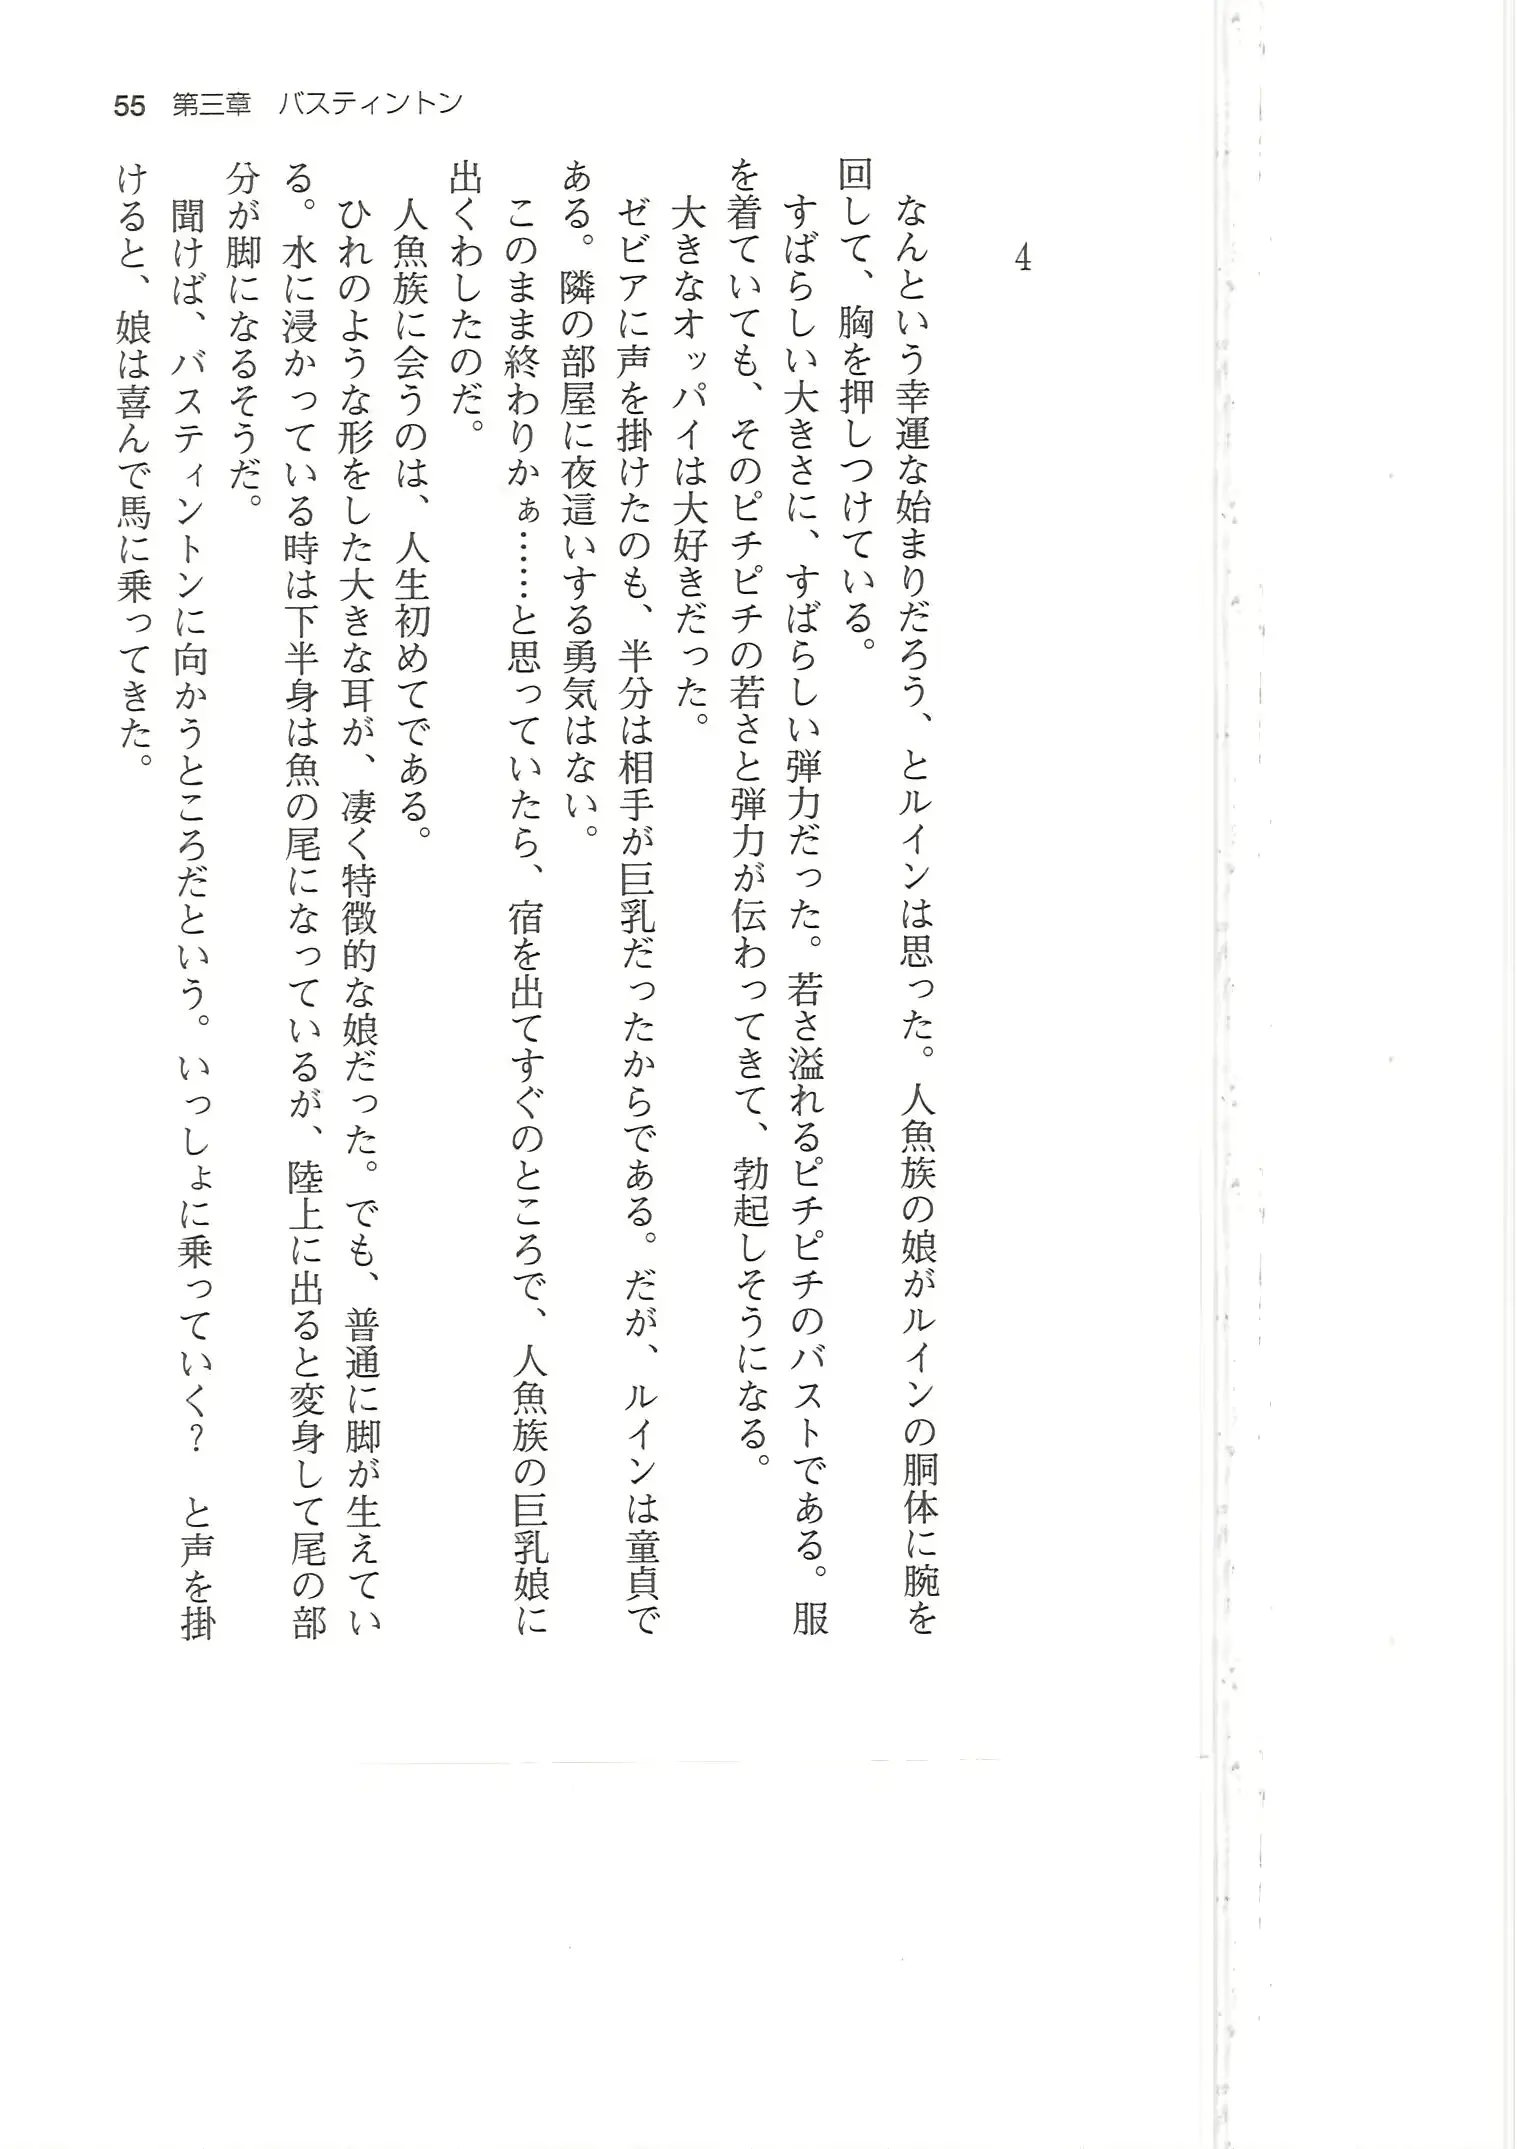 55 第三章　バスティントン
4
　なんという幸運な始まりだろう、とルインは思った。人魚族の娘がルインの胴体に腕を
回して、胸を押しつけている。
　すばらしい大きさに、すばらしい弾力だった。若さ溢れるピチピチのバストである。服
を着ていても、そのピチピチの若さと弾力が伝わってきて、勃起しそうになる。
　大きなオッパイは大好きだった。
　ゼビアに声を掛けたのも、半分は相手が巨乳だったからである。だが、ルインは童貞で
ある。隣の部屋に夜這いする勇気はない。
　このまま終わりかぁ……と思っていたら、宿を出てすぐのところで、人魚族の巨乳娘に
出くわしたのだ。
　人魚族に会うのは、人生初めてである。
　ひれのような形をした大きな耳が、凄く特徴的な娘だった。でも、普通に脚が生えてい
る。水に浸かっている時は下半身は魚の尾になっているが、陸上に出ると変身して尾の部
分が脚になるそうだ。
　聞けば、バスティントンに向かうところだという。いっしょに乗っていく？　と声を掛
けると、娘は喜んで馬に乗ってきた。